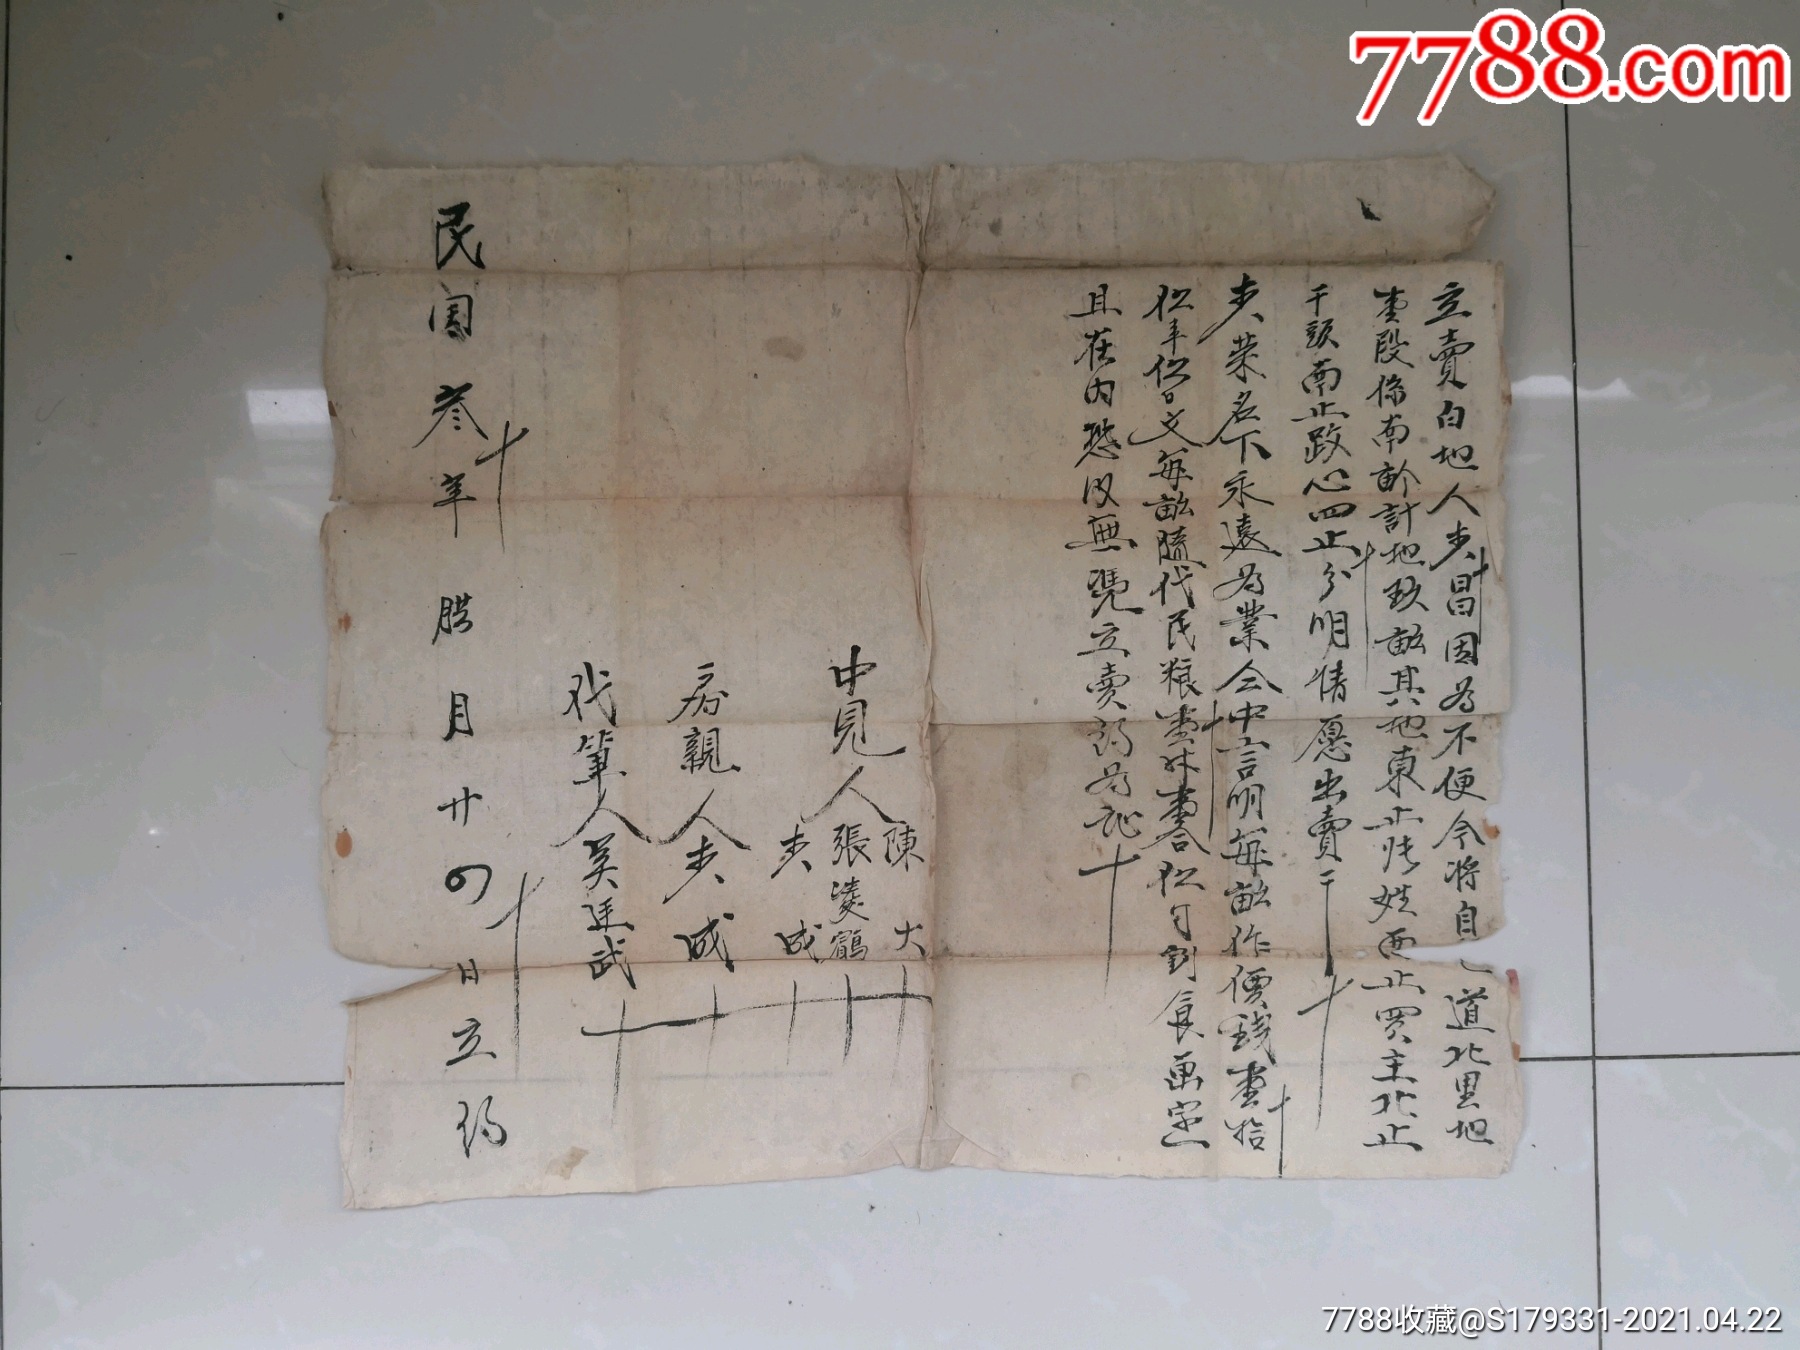 7788.com
立賣白地人步昌因為不便今將自己道北里地
壹段係南畛計地玖畝其地東止張姓西止買主北止
干頭南止路心四止分明情愿出賣于
步荣名下永遠為業仝中言明每畝作價錢壹拾
仟文每畝随代民粮
在内恐後無凴立賣約為証
中見人
陳大
張凌鶴
步成
房親人步成
代筆人吴廷武
民国叁年腊月廿四日立約
7788收藏@S179331-2021.04.22